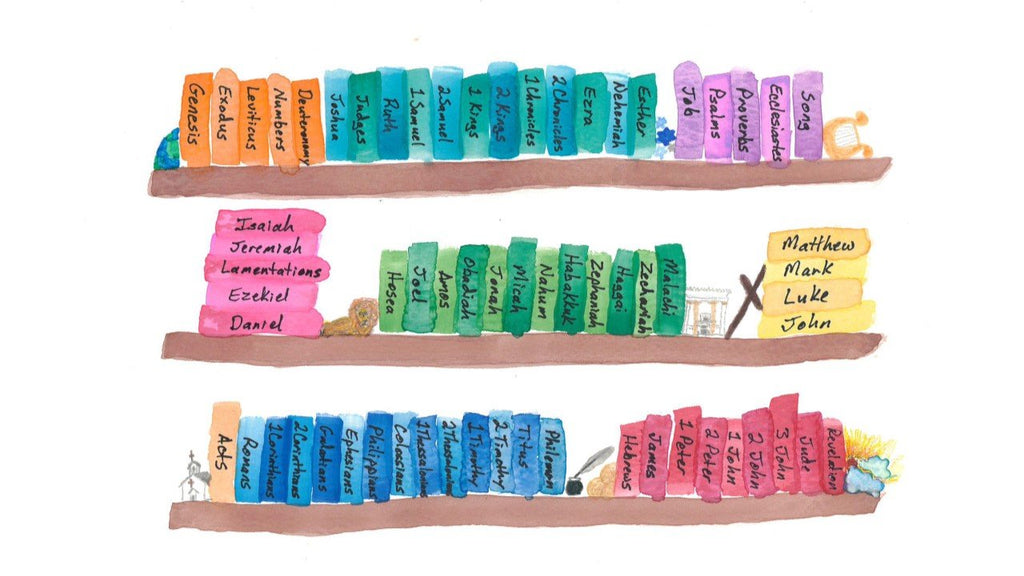 Genesis
Exodus
Leviticus
Numbers
Deuteronomy
Joshua
Judges
Ruth
1 Samuel
2 Samuel
1 Kings
2 Kings
1 Chronicles
2 Chronicles
Ezra
Nehemiah
Esther
Job
Psalms
Proverbs
Ecclesiastes
Song
Isaiah
Jeremiah
Lamentations
Ezekiel
Daniel
Hosea
Joel
Amos
Obadiah
Jonah
Micah
Nahum
Habakkuk
Zephaniah
Haggai
Zechariah
Malachi
Matthew
Mark
Luke
John
Acts
Romans
1 Corinthians
2 Corinthians
Galatians
Ephesians
Philippians
Colossians
1 Thessalonians
2 Thessalonians
1 Timothy
2 Timothy
Titus
Philemon
Hebrews
James
1 Peter
2 Peter
1 John
2 John
3 John
Jude
Revelation